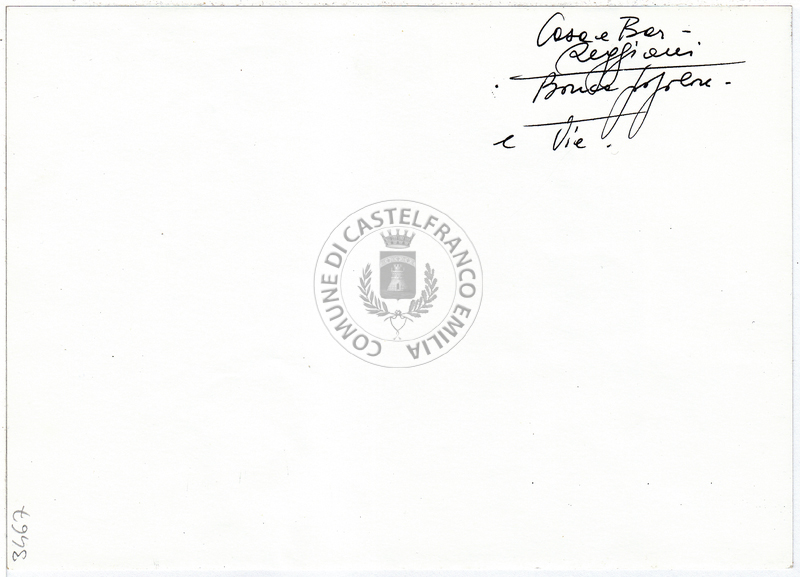 Casa e Bar -
Reggiani
Banca popolare -
e Vie .
COMUNE DI CASTELFRANCO EMILIA
3467